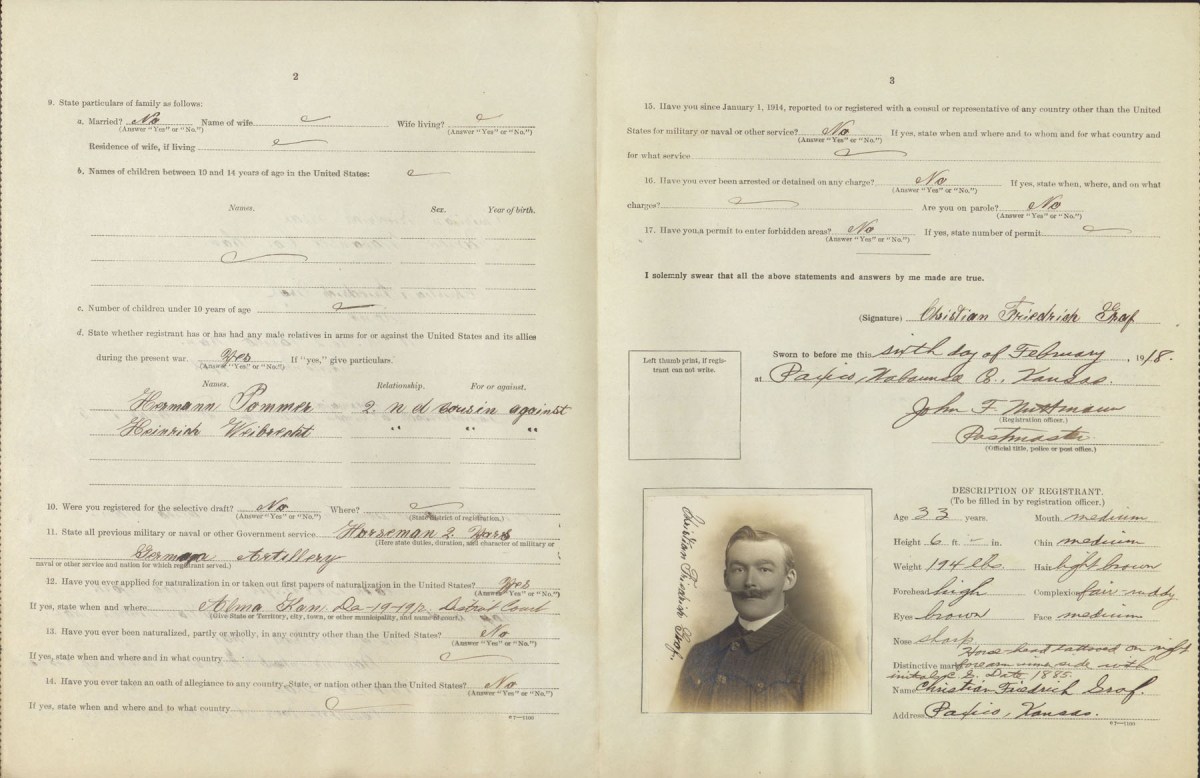 2
9. State particulars of family as follows:
a. Married? No Name of wife Wife living?
(Answer "Yes" or "No.") (Answer "Yes" or "No.")
Residence of wife, if living
b. Names of children between 10 and 14 years of age in the United States:
Names. Sex. Year of birth.
c. Number of children under 10 years of age
d. State whether registrant has or has had any male relatives in arms for or against the United States and its allies
during the present war. Yes If "yes," give particulars.
(Answer "Yes" or "No.")
Names. Relationship. For or against.
Hermann Pommer 2nd cousin against
Heinrich Weibrecht " " "
10. Were you registered for the selective draft? No Where?
(Answer "Yes" or "No.") (State district of registration.)
11. State all previous military or naval or other Government service Horseman 2 Years
(Here state duties, duration, and character of military or
German Artillery
naval or other service and nation for which registrant served.)
12. Have you ever applied for naturalization in or taken out first papers of naturalization in the United States? Yes
(Answer "Yes" or "No.")
If yes, state when and where Alma Kan. District Court
(Give State or Territory, city, town, or other municipality, and name of court.)
13. Have you ever been naturalized, partly or wholly, in any country other than the United States? No
(Answer "Yes" or "No.")
If yes, state when and where and in what country
14. Have you ever taken an oath of allegiance to any country, State, or nation other than the United States? No
(Answer "Yes" or "No.")
If yes, state when and where and to what country
67—1100
3
15. Have you since January 1, 1914, reported to or registered with a consul or representative of any country other than the United
States for military or naval or other service? No If yes, state when and where and to whom and for what country and
(Answer "Yes" or "No.")
for what service
16. Have you ever been arrested or detained on any charge? No If yes, state when, where, and on what
(Answer "Yes" or "No.")
charges? Are you on parole? No
(Answer "Yes" or "No.")
17. Have you a permit to enter forbidden areas? No If yes, state number of permit
(Answer "Yes" or "No.")
I solemnly swear that all the above statements and answers by me made are true.
(Signature) Christian Friedrich Graf
Left thumb print, if regis-
trant can not write.
Sworn to before me this sixth day of February, 1918.
at Paxico, Wabaunsee Co., Kansas.
John F.
(Registration officer.)
Postmaster
(Official title, police or post office.)
Christian Friedrich Graf.
DESCRIPTION OF REGISTRANT.
(To be filled in by registration officer.)
Age 33 years. Mouth medium
Height 6 ft. - in. Chin medium
Weight 194 lbs Hair light brown
Forehead high Complexion fair ruddy
Eyes brown Face medium
Nose sharp
Horse head tattooed on right
Distinctive marks forearm inner side with
initials Date 1885
Name Christian Friedrich Graf.
Address Paxico, Kansas.
67—1100